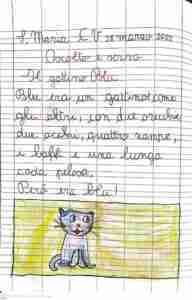 S. Maria C. V. 28 marzo 2022
Ascolto e scrivo
Il gattino Blu
Blu era un gattino come
gli altri, con due orecchie
due occhi, quattro zampe,
i baffi e una lunga
coda pelosa.
Però era blu!